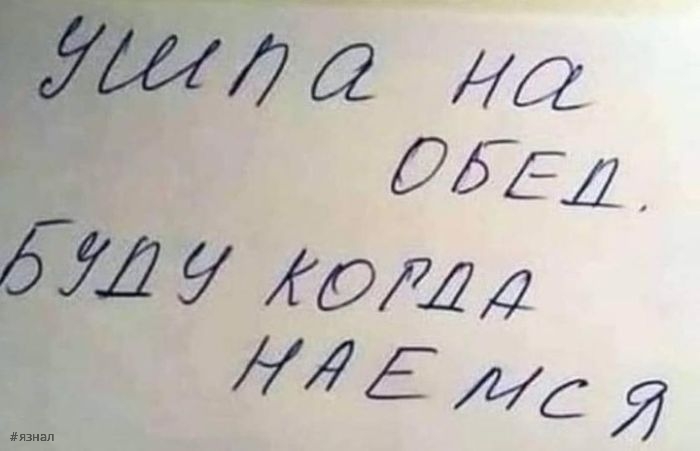 Ушла на
ОБЕД.
БУДУ КОГДА
НАЕМСЯ
#язнал